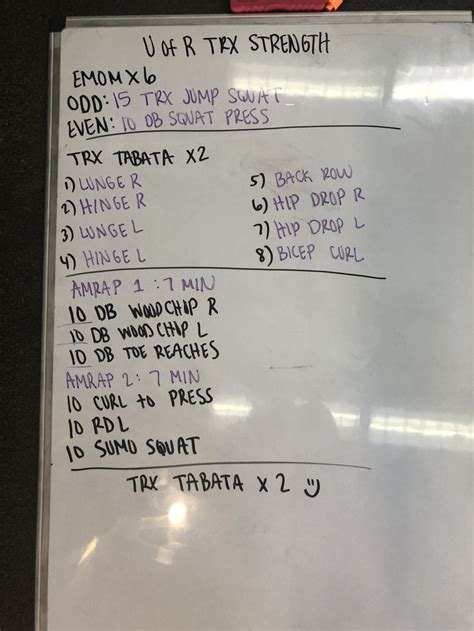 U of R TRX STRENGTH
EMOM X6
ODD: 15 TRX JUMP SQUAT
EVEN: 10 DB SQUAT PRESS
TRX TABATA X2
1) LUNGE R
2) HINGE R
3) LUNGE L
4) HINGE L
5) BACK ROW
6) HIP DROP R
7) HIP DROP L
8) BICEP CURL
AMRAP 1: 7 MIN
10 DB WOODCHOP R
10 DB WOODCHOP L
10 DB TOE REACHES
AMRAP 2: 7 MIN
10 CURL to PRESS
10 RDL
10 SUMO SQUAT
TRX TABATA X 2